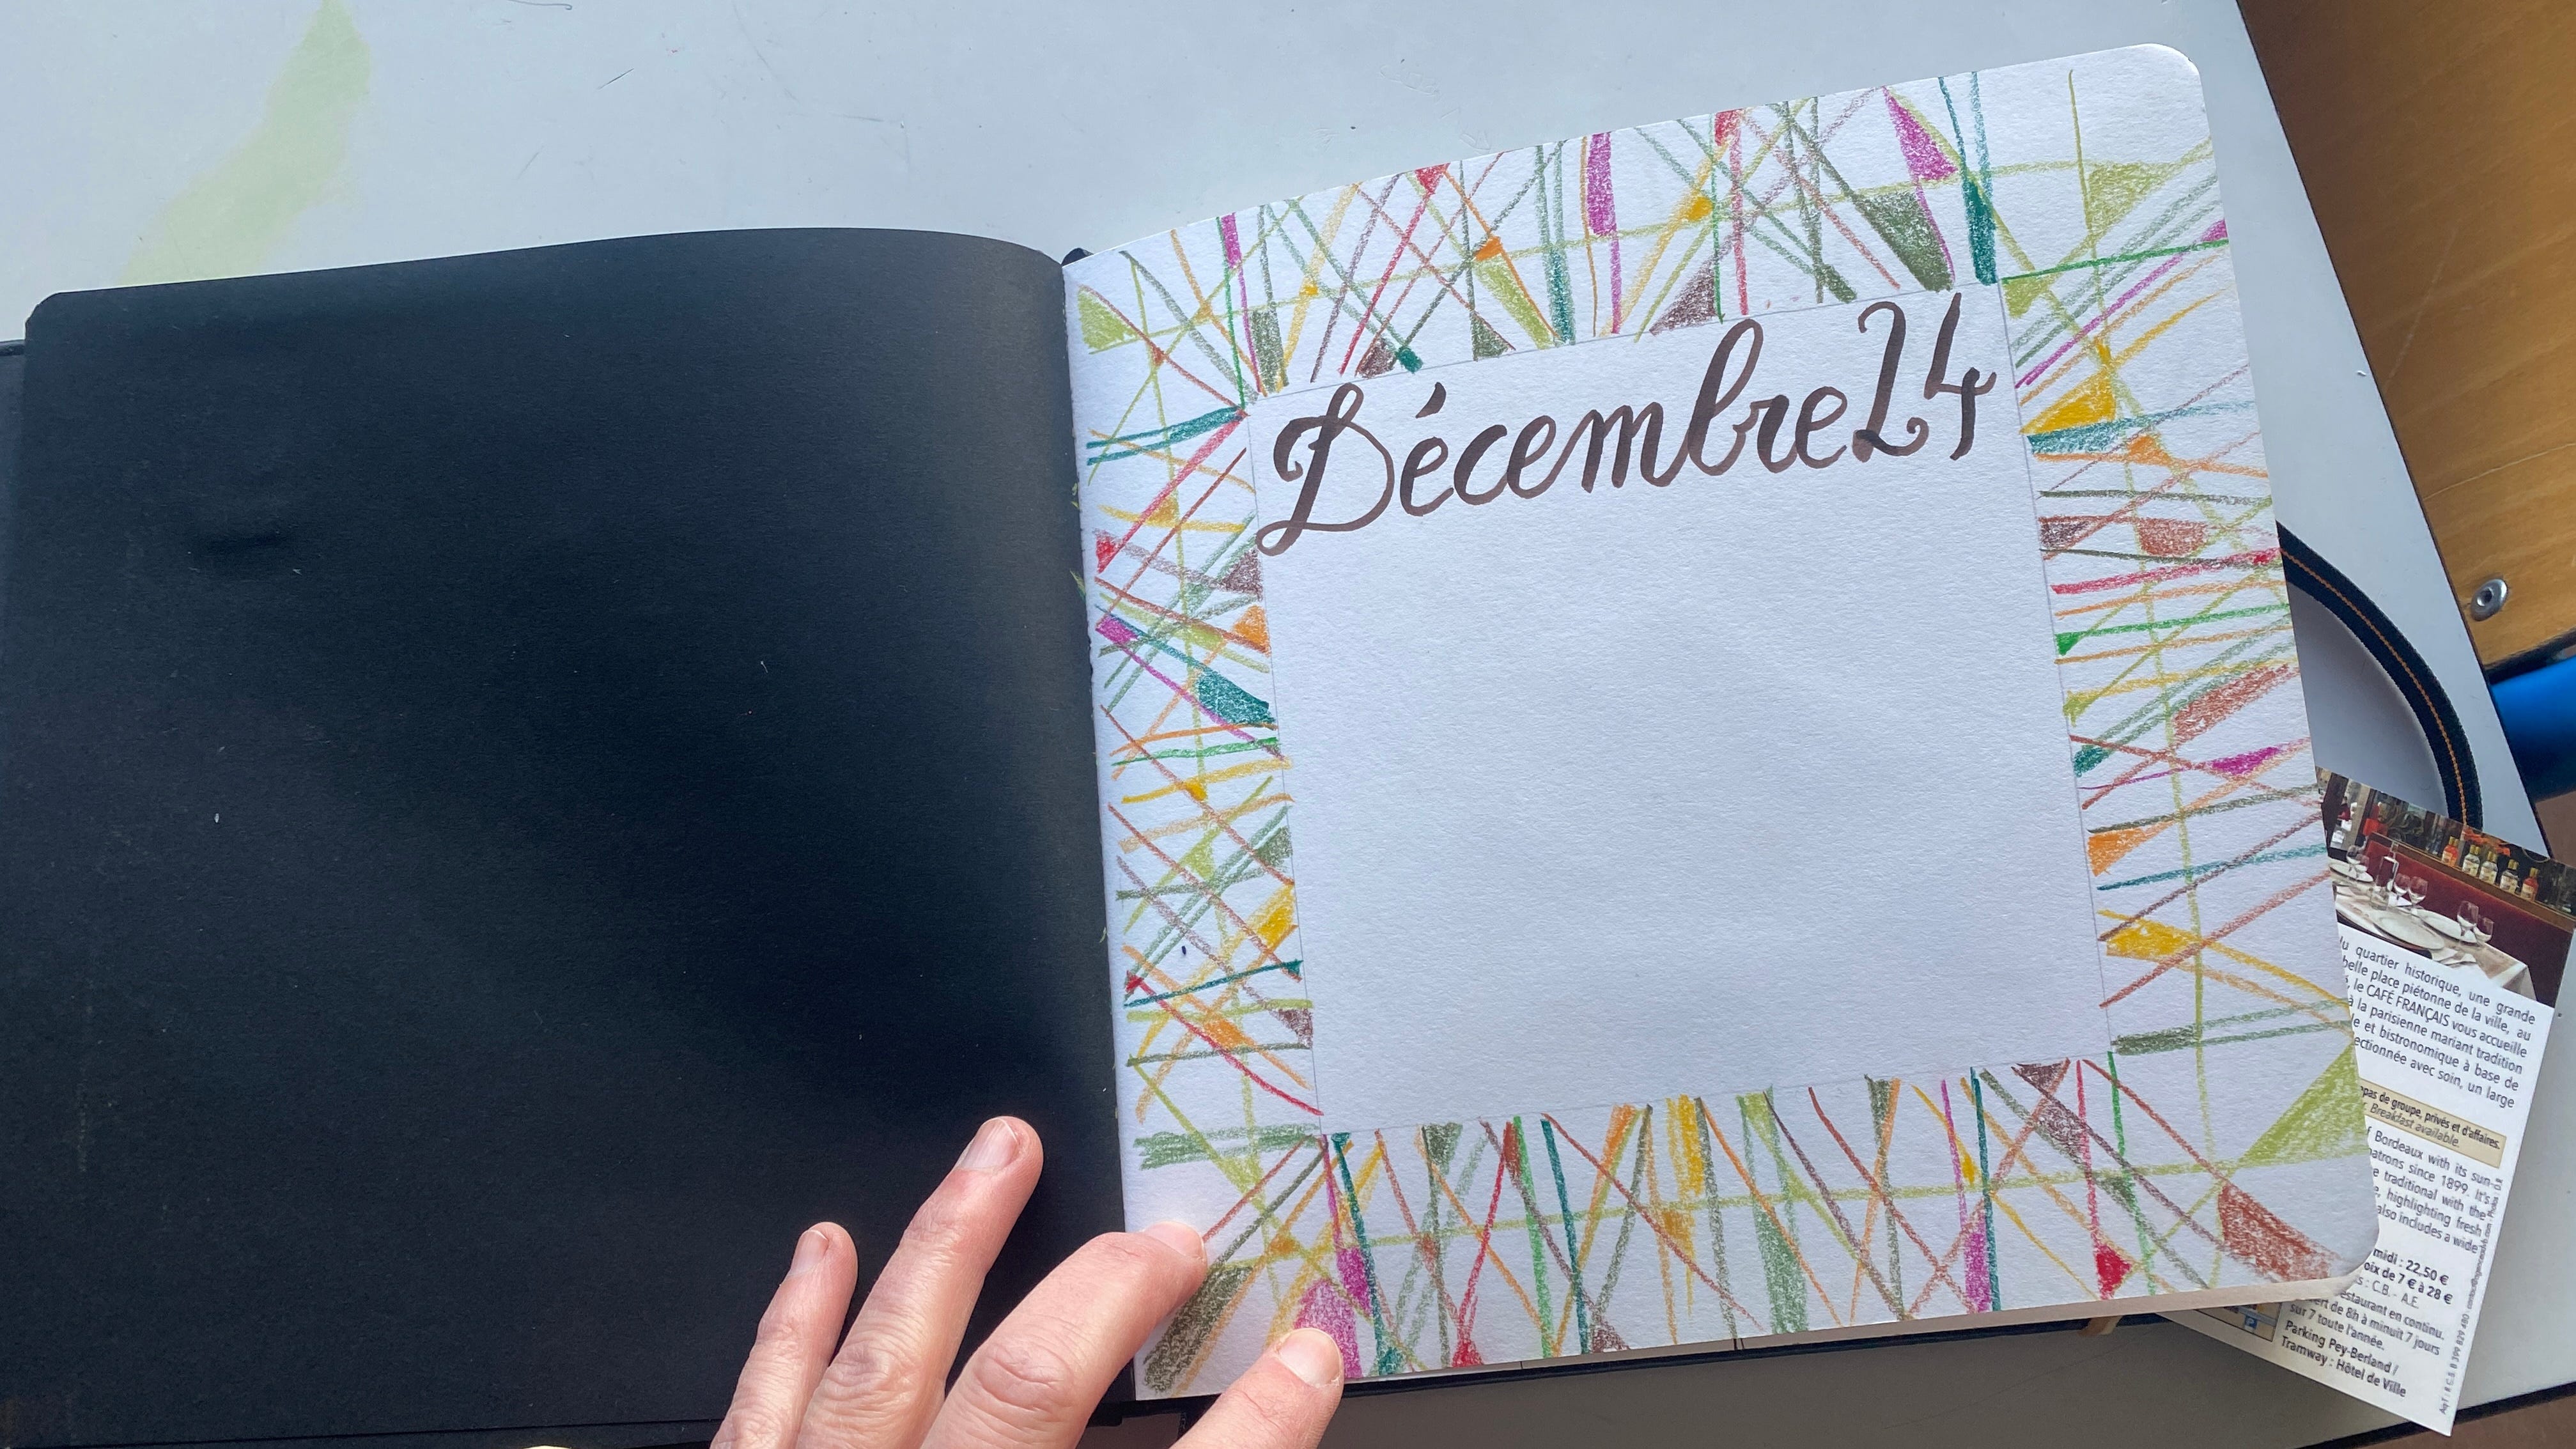 Décembre 24
du quartier historique, une grande
belle place piétonne de la ville, au
le CAFÉ FRANÇAIS vous accueille
à la parisienne mariant tradition
et bistronomique à base de
avec soin, un large
de groupe, privés et d'affaires.
Breakfast available.
Bordeaux with its sun-
patrons since 1899. It's
traditional with the
highlighting fresh
also includes a wide
midi : 22.50 €
de 7 € à 28 €
: C.B. - A.E.
restaurant en continu.
de 8h à minuit 7 jours
sur 7 toute l'année.
Parking Pey-Berland /
Tramway : Hôtel de Ville